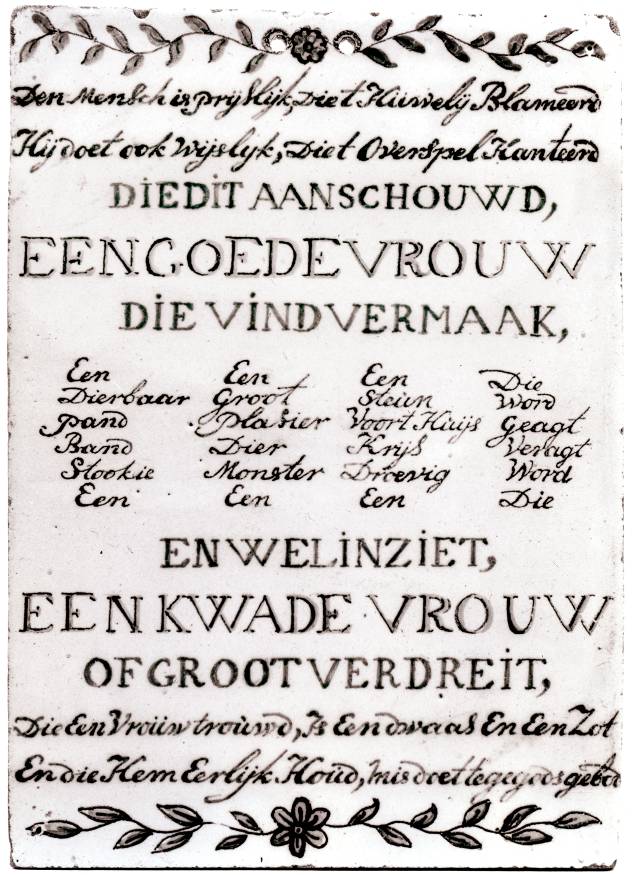 Den Mensch is prijslijk, Die t Huwelij Blameerd
Hij doet ook Wijslyk, Die t Overspel Hanteerd
DIE DIT AANSCHOUWD,
EEN GOEDE VROUW
DIE VIND VERMAAK,
Een Een Een Die
Dierbaar Groot Steun Word
pand plasier Voort Huijs Geagt
Band Dier Krijs Veragt
Stookie Monster Droevig Word
Een Een Een Die
EN WEL INZIET,
EEN KWADE VROUW
OF GROOT VERDREIT,
Die Een Vrouw trouwd, Is Een dwaas En Een Zot
En die Hem Eerlijk Houd, misdoet tegegodsgebod